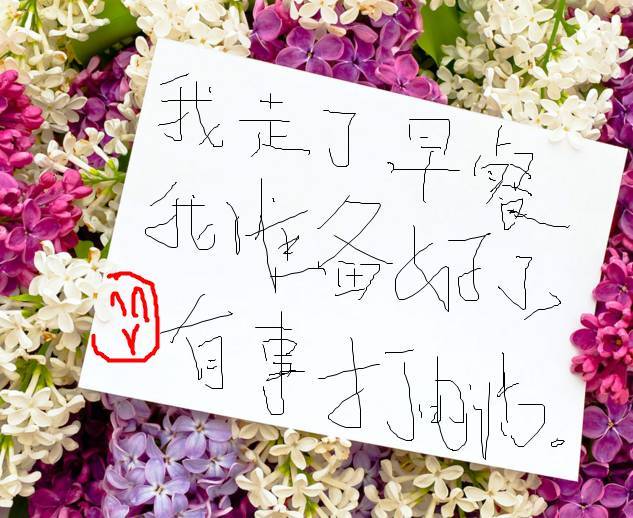 我走了早餐
我准备好了
有事打电话。